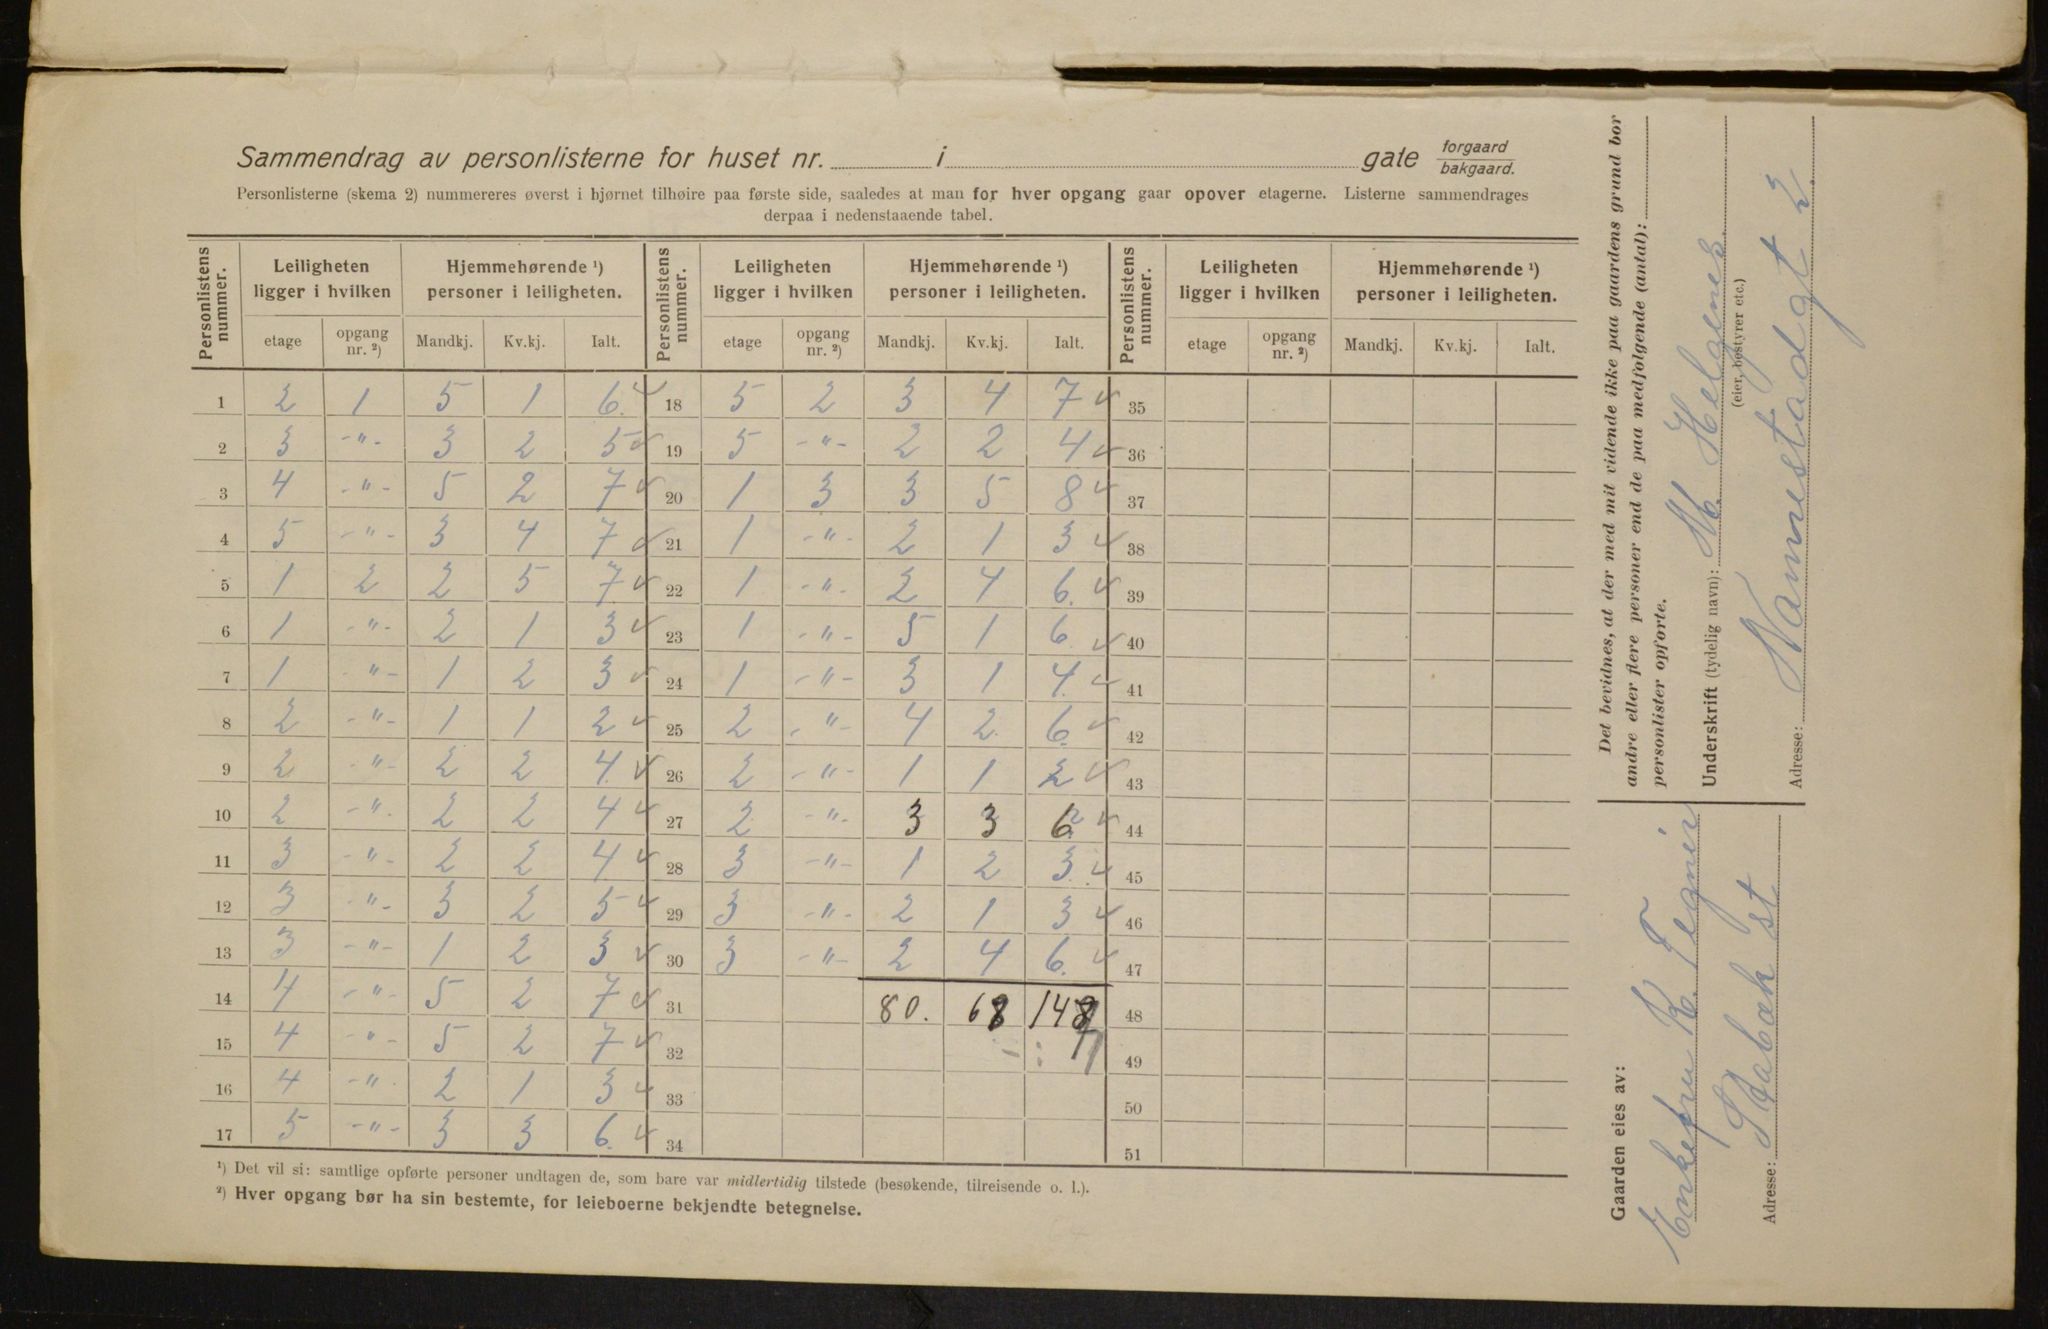 Sammendrag av personlisterne for huset nr. i gate forgaard bakgaard.
Personlisterne (skema 2) nummereres øverst i hjørnet tilhøire paa første side, saaledes at man for hver opgang gaar opover etagerne. Listerne sammendrages
derpaa i nedenstaaende tabel.
Personlistens nummer. Leiligheten ligger i hvilken Hjemmehørende ¹) personer i leiligheten. Personlistens nummer. Leiligheten ligger i hvilken Hjemmehørende ¹) personer i leiligheten. Personlistens nummer. Leiligheten ligger i hvilken Hjemmehørende ¹) personer i leiligheten.
etage opgang nr. ²) Mandkj. Kv.kj. Ialt. etage opgang nr. ²) Mandkj. Kv.kj. Ialt. etage opgang nr. ²) Mandkj. Kv.kj. Ialt.
1 2 1 5 1 6. 18 5 2 3 4 7 35
2 3 -"- 3 2 5 19 5 -"- 2 2 4 36
3 4 -"- 5 2 7 20 1 3 3 5 8 37
4 5 -"- 3 4 7 21 1 -"- 2 1 3 38
5 1 2 2 5 7 22 1 -"- 2 4 6. 39
6 1 -"- 2 1 3 23 1 -"- 5 1 6. 40
7 1 -"- 1 2 3 24 1 -"- 3 1 4. 41
8 2 -"- 1 1 2 25 2 -"- 4 2. 6. 42
9 2 -"- 2 2 4. 26 2 -"- 1 1 2 43
10 2 -"- 2 2 4 27 2 -"- 3 3 6 44
11 3 -"- 2 2 4 28 3 -"- 1 2 3. 45
12 3 -"- 3 2 5 29 3 -"- 2 1 3 46
13 3 -"- 1 2 3 30 3 -"- 2 4 6. 47
14 4 -"- 5 2 7 31 80. 68 148 48
15 4 -"- 5 2 7 32 49
16 4 -"- 2 1 3 33 50
17 5 -"- 3 3 6. 34 51
¹) Det vil si: samtlige opførte personer undtagen de, som bare var midlertidig tilstede (besøkende, tilreisende o. l.).
²) Hver opgang bør ha sin bestemte, for leieboerne bekjendte betegnelse.
Det bevidnes, at der med mit vidende ikke paa gaardens grund bor
andre eller flere personer end de paa medfølgende (antal):
personlister opførte.
Underskrift (tydelig navn): M. Helgenes.
(eier, bestyrer etc.)
Adresse: Nannestadgt 2.
Gaarden eies av:
Enkefru K. Tegnér
Adresse: Stabæk st